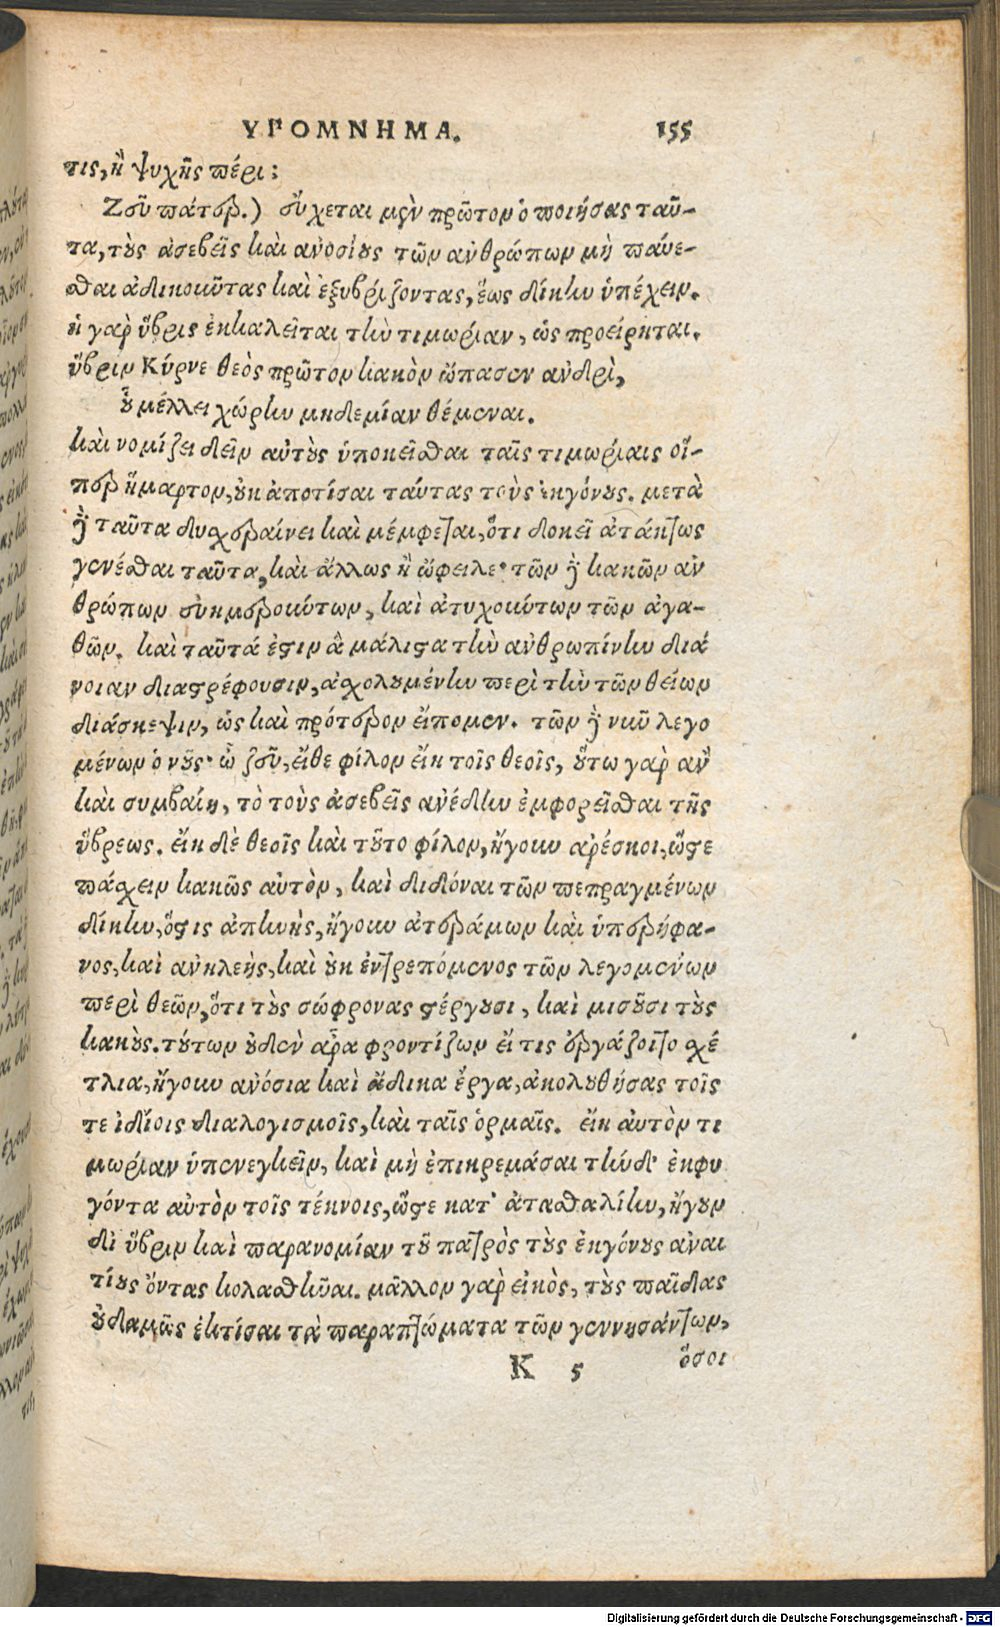 ΥΠΟΜΝΗΜΑ. 155
τις, ἢ ψυχῆς πέρι;
Ζεῦ πάτερ.) εὔχεται μὲν πρῶτον ὁ ποιήσας ταῦ-
τα, τοὺς ἀσεβεῖς καὶ ἀνοσίους τῶν ἀνθρώπων μὴ παύε-
σθαι ἀδικοῦντας καὶ ἐξυβρίζοντας, ἕως δίκην ὑπέχειν.
ἡ γὰρ ὕβρις ἐκκαλεῖται τὴν τιμωρίαν, ὡς προείρηται.
ὕβριν Κύρνε θεὸς πρῶτον κακὸν ὤπασεν ἀνδρὶ,
οὗ μέλλει χώρην μηδεμίαν θέμεναι.
καὶ νομίζει δεῖν αὐτοὺς ὑποκεῖσθαι ταῖς τιμωρίαις οἵ-
περ ἥμαρτον, οὐκ ἀποτίσαι ταύτας τοὺς ἐκγόνους. μετὰ
δὲ ταῦτα δυσχεραίνει καὶ μέμφεται, ὅτι δοκεῖ ἀτάκτως
γενέσθαι ταῦτα, καὶ ἄλλως ἢ ὤφειλε· τῶν δὲ κακῶν ἀν
θρώπων εὐημερούντων, καὶ ἀτυχούντων τῶν ἀγα-
θῶν. καὶ ταῦτά ἐστιν ἃ μάλιστα τὴν ἀνθρωπίνην διά
νοιαν διαστρέφουσιν, ἀσχολουμένην περὶ τὴν τῶν θείων
διάσκεψιν, ὡς καὶ πρότερον εἴπομεν. τῶν δὲ νῦν λεγο
μένων ὁ νοῦς· ὦ ζεῦ, εἴθε φίλον εἴη τοῖς θεοῖς, οὕτω γὰρ ἂν
καὶ συμβαίη, τὸ τοὺς ἀσεβεῖς ἀνέδην ἐμφορεῖσθαι τῆς
ὕβρεως. εἴη δὲ θεοῖς καὶ τοῦτο φίλον, ἤγουν ἀρέσκοι, ὥστε
πάσχειν κακῶς αὐτὸν, καὶ διδόναι τῶν πεπραγμένων
δίκην, ὅστις ἀπηνὴς, ἤγουν ἀτεράμων καὶ ὑπερήφα-
νος, καὶ ἀνηλεὴς, καὶ οὐκ ἐντρεπόμενος τῶν λεγομένων
περὶ θεῶν, ὅτι τοὺς σώφρονας στέργουσι, καὶ μισοῦσι τοὺς
κακούς. τούτων οὐδὲν ἆρα φροντίζων εἴ τις ἐργάζοιτο σχέ
τλια, ἤγουν ἀνόσια καὶ ἄδικα ἔργα, ἀκολουθήσας τοῖς
τε ἰδίοις διαλογισμοῖς, καὶ ταῖς ὁρμαῖς. εἴη αὐτὸν τι
μωρίαν ὑπενεγκεῖν, καὶ μὴ ἐπικρεμάσαι τήνδ' ἐκφυ
γόντα αὐτὸν τοῖς τέκνοις, ὥστε κατ' ἀτασθαλίην, ἤγουν
δι ὕβριν καὶ παρανομίαν τοῦ πατρὸς τοὺς ἐκγόνους ἀναι
τίους ὄντας κολασθῆναι. μᾶλλον γὰρ εἰκὸς, τοὺς παῖδας
οὐδαμῶς ἐκτίσαι τὰ παραπτώματα τῶν γεννησάντων,
K 5 ὅσοι
Digitalisierung gefördert durch die Deutsche Forschungsgemeinschaft - DFG